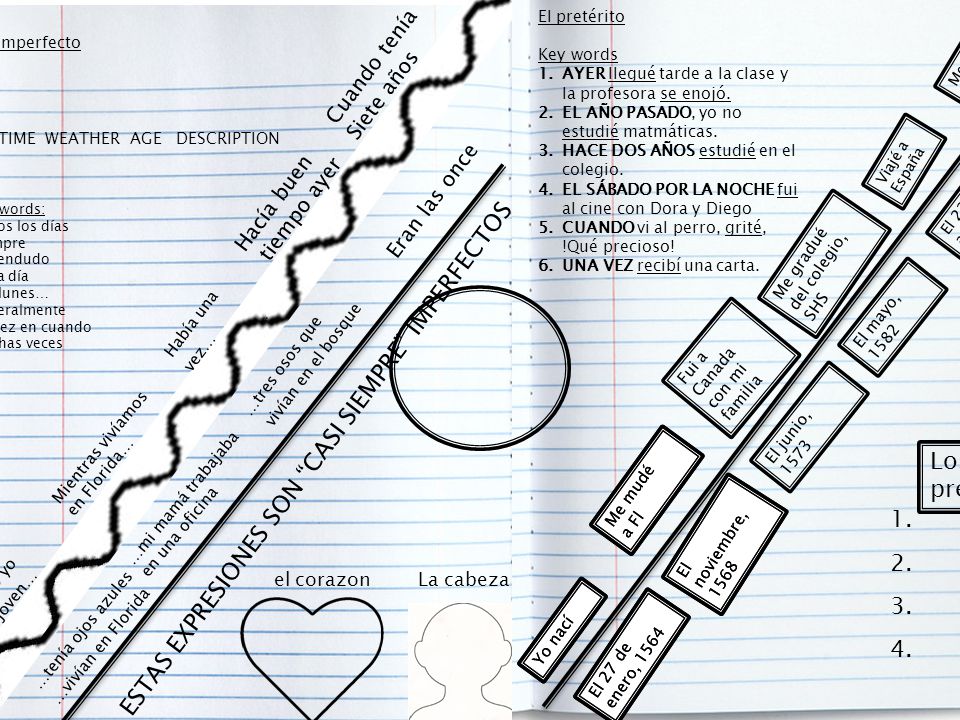 imperfecto
TIME WEATHER AGE DESCRIPTION
words:
os los días
mpre
endudo
a día
lunes...
eralmente
ez en cuando
has veces
Cuando tenía
Siete años
Hacía buen
tiempo ayer
Eran las once
Había una
vez...
...tres osos que
vivían en el bosque
Mientras vivíamos
en Florida...
...mi mamá trabajaba
en una oficina
yo
joven...
...tenía ojos azules
...vivían en Florida
ESTAS EXPRESIONES SON “CASI SIEMPRE” IMPERFECTOS
el corazon
La cabeza
El pretérito
Key words
1. AYER llegué tarde a la clase y
la profesora se enojó.
2. EL AÑO PASADO, yo no
estudié matmáticas.
3. HACE DOS AÑOS estudié en el
colegio.
4. EL SÁBADO POR LA NOCHE fui
al cine con Dora y Diego
5. CUANDO vi al perro, grité,
!Qué precioso!
6. UNA VEZ recibí una carta.
Me
Viajé a
España
El 23
a
Me gradué
del colegio,
SHS
El mayo,
1582
Fui a
Canada
con mi
familia
El junio,
1573
Me mudé
a Fl
El
noviembre,
1568
Yo nací
El 27 de
enero, 1564
Lo
pre
1.
2.
3.
4.